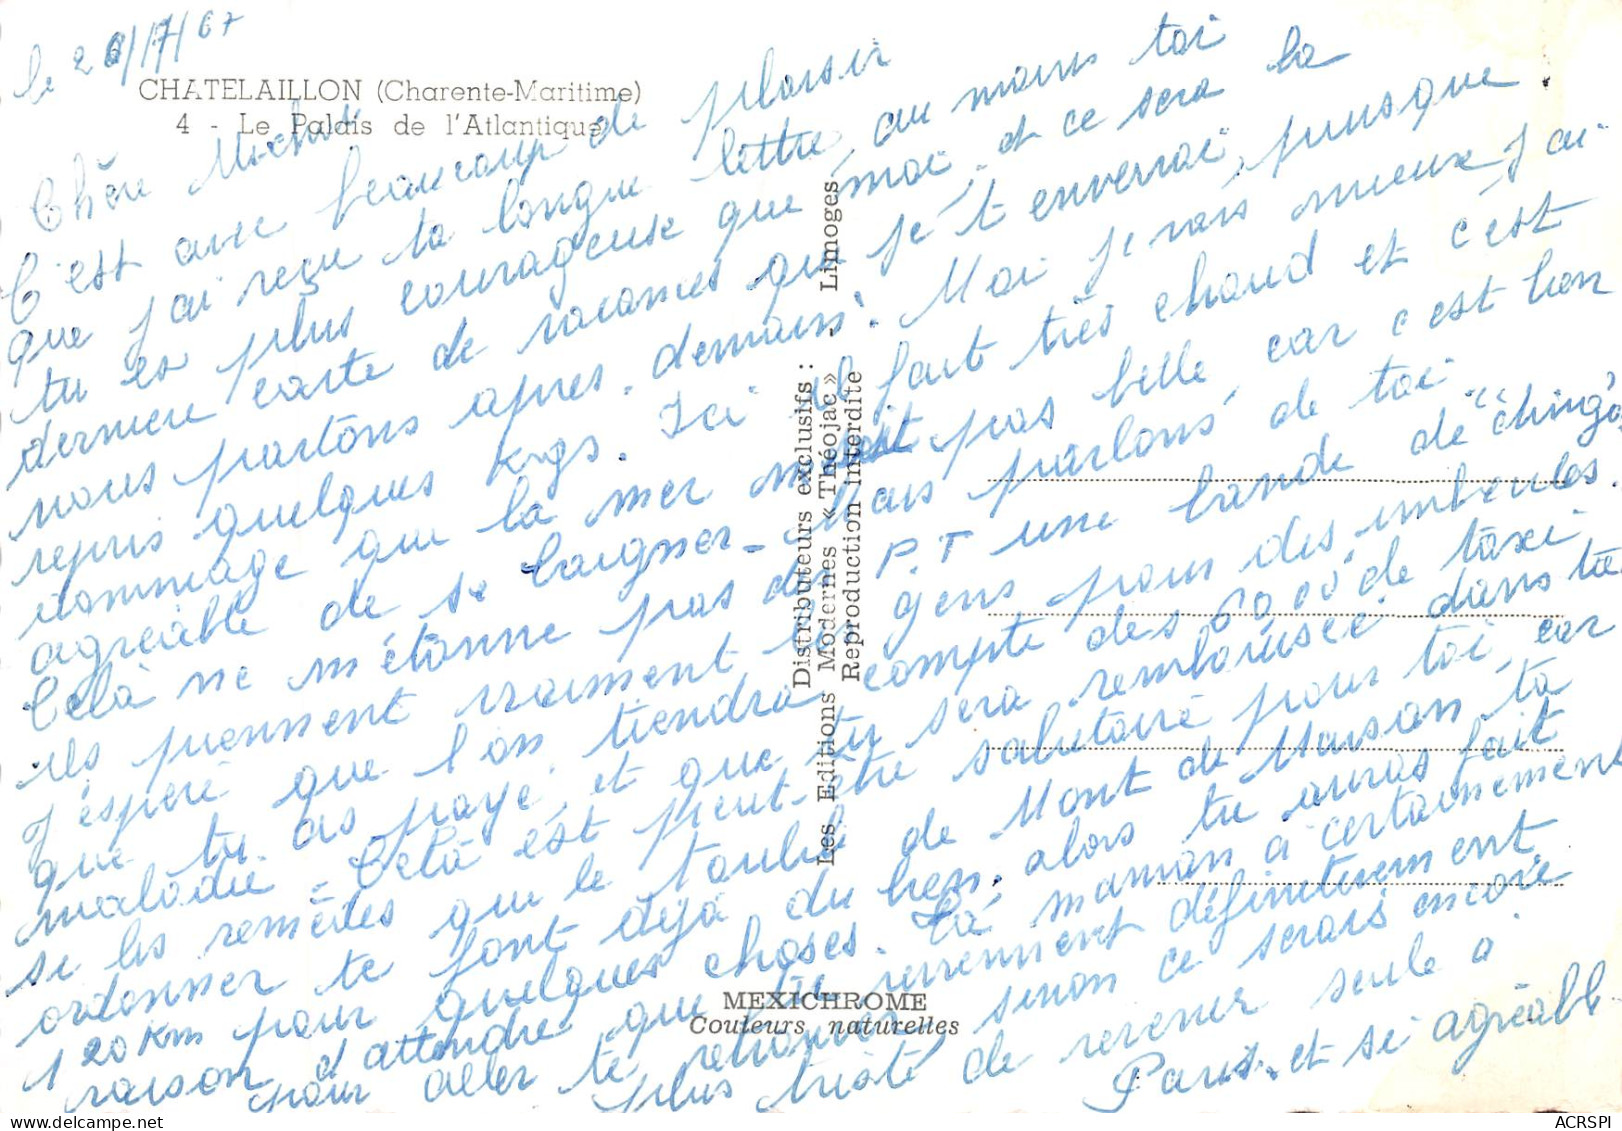 le 26/7/67
CHATELAILLON (Charente-Maritime)
4 - Le Palais de l'Atlantique
Chère
C'est avec beaucoup de plaisir
que j'ai reçu ta longue lettre, au moins toi
tu es plus courageuse que moi, et ce sera la
dernière carte de vacances que je t'enverrai, puisque
nous partons après-demain. Moi je vais mieux j'ai
repris quelques kgs. Ici il fait très chaud et c'est
dommage que la mer soit pas belle, car c'est bien
agréable de se baigner - Mais parlons de toi
Celà ne m'étonne pas des P.T une bande de "chingà
ils prennent vraiment les gens pour des imbeciles.
J'espère que l'on tiendra compte des 60,00 de taxi
que tu as payé, et que tu sera remboursée dans ta
maladie - Celà est peut-être salutaire pour toi, car
si les remèdes que le toubib de Mont de Marsan t'a
ordonner te font déjà du bien, alors tu auras fait
120 Km pour quelques choses. Ta maman a certainement
raison d'attendre que tu reviennent définitivement
pour aller te retrouver sinon ce serais encore
plus triste de revenir seule a
Paris, et si agréabl
Distributeurs exclusifs :
Les Editions Modernes « Théojac » - Limoges
Reproduction interdite
MEXICHROME
Couleurs naturelles
ACRSPI